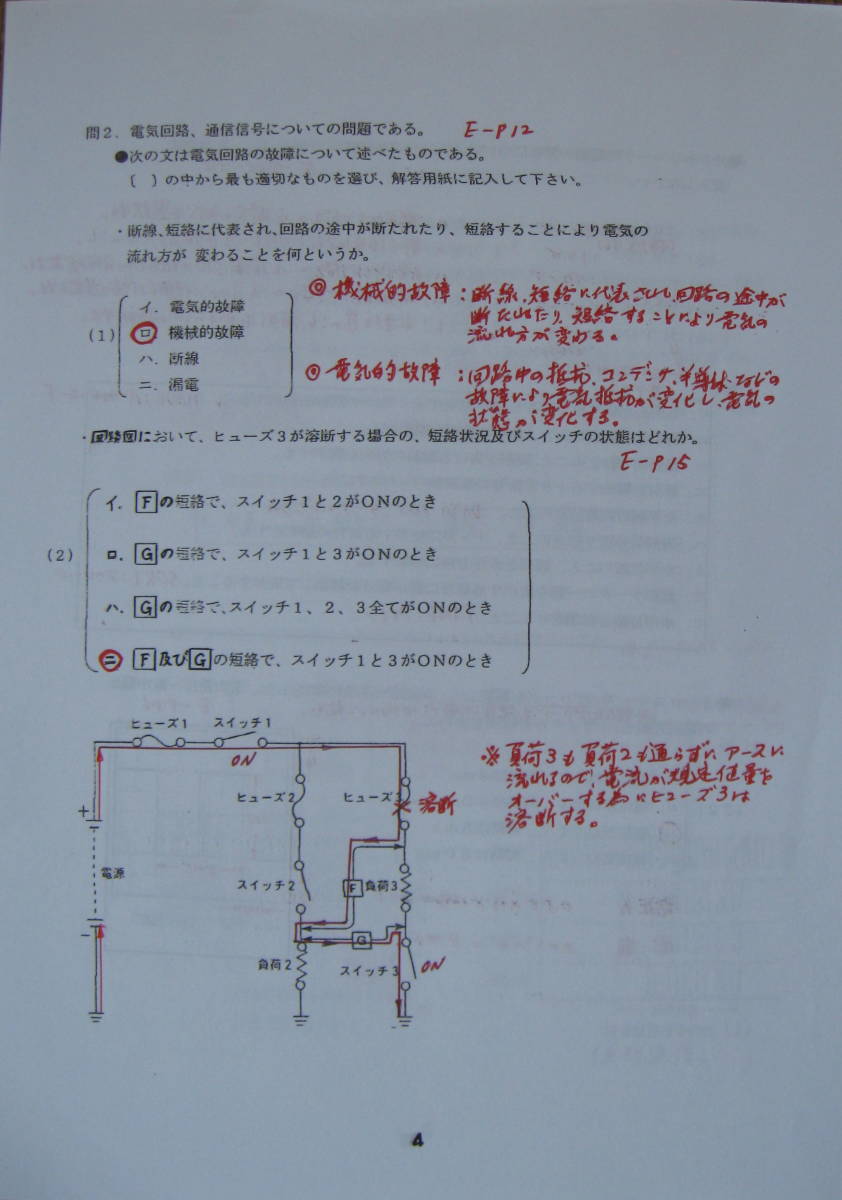 問2．電気回路、通信信号についての問題である。 E-P12
●次の文は電気回路の故障について述べたものである。
〔　〕の中から最も適切なものを選び、解答用紙に記入して下さい。
・断線、短絡に代表され、回路の途中が断たれたり、短絡することにより電気の
流れ方が 変わることを何というか。
(1)
イ．電気的故障
ロ 機械的故障
ハ．断線
ニ．漏電
◎ 機械的故障：断線、短絡に代表され、回路の途中が
断たれたり、短絡することにより電気の
流れ方が変わる。
◎ 電気的故障：回路中の抵抗、コンデンサ、半導体などの
故障により電気抵抗が変化し、電気の
状態が変化する。
・回路図において、ヒューズ3が溶断する場合の、短絡状況及びスイッチの状態はどれか。
E-P15
(2)
イ．Fの短絡で、スイッチ1と2がONのとき
ロ．Gの短絡で、スイッチ1と3がONのとき
ハ．Gの短絡で、スイッチ1、2、3全てがONのとき
ニ F及びGの短絡で、スイッチ1と3がONのとき
ヒューズ1 スイッチ1
ON
ヒューズ2 ヒューズ3 溶断
+
電源
スイッチ2 F 負荷3
−
G
負荷2 スイッチ3 ON
※負荷3も負荷2も通らずにアースに
流れるので、電流が規定値量を
オーバーする為にヒューズ3は
溶断する。
4